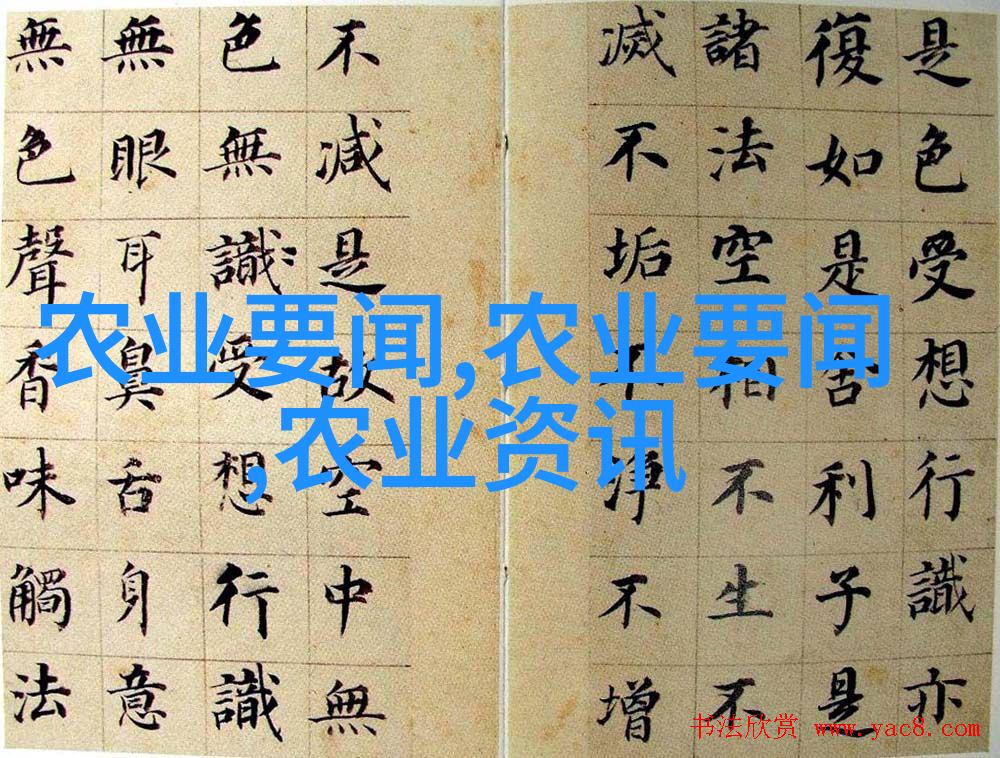 是色受想行識亦
復如是舍利子是
諸法空相不生不
滅不垢不淨不增
不減是故空中無
色無識受想行識
無眼耳鼻舌身意
無色聲香味觸法
农业要闻,农业要闻
,农业资讯
书法欣赏 www.yac8.com